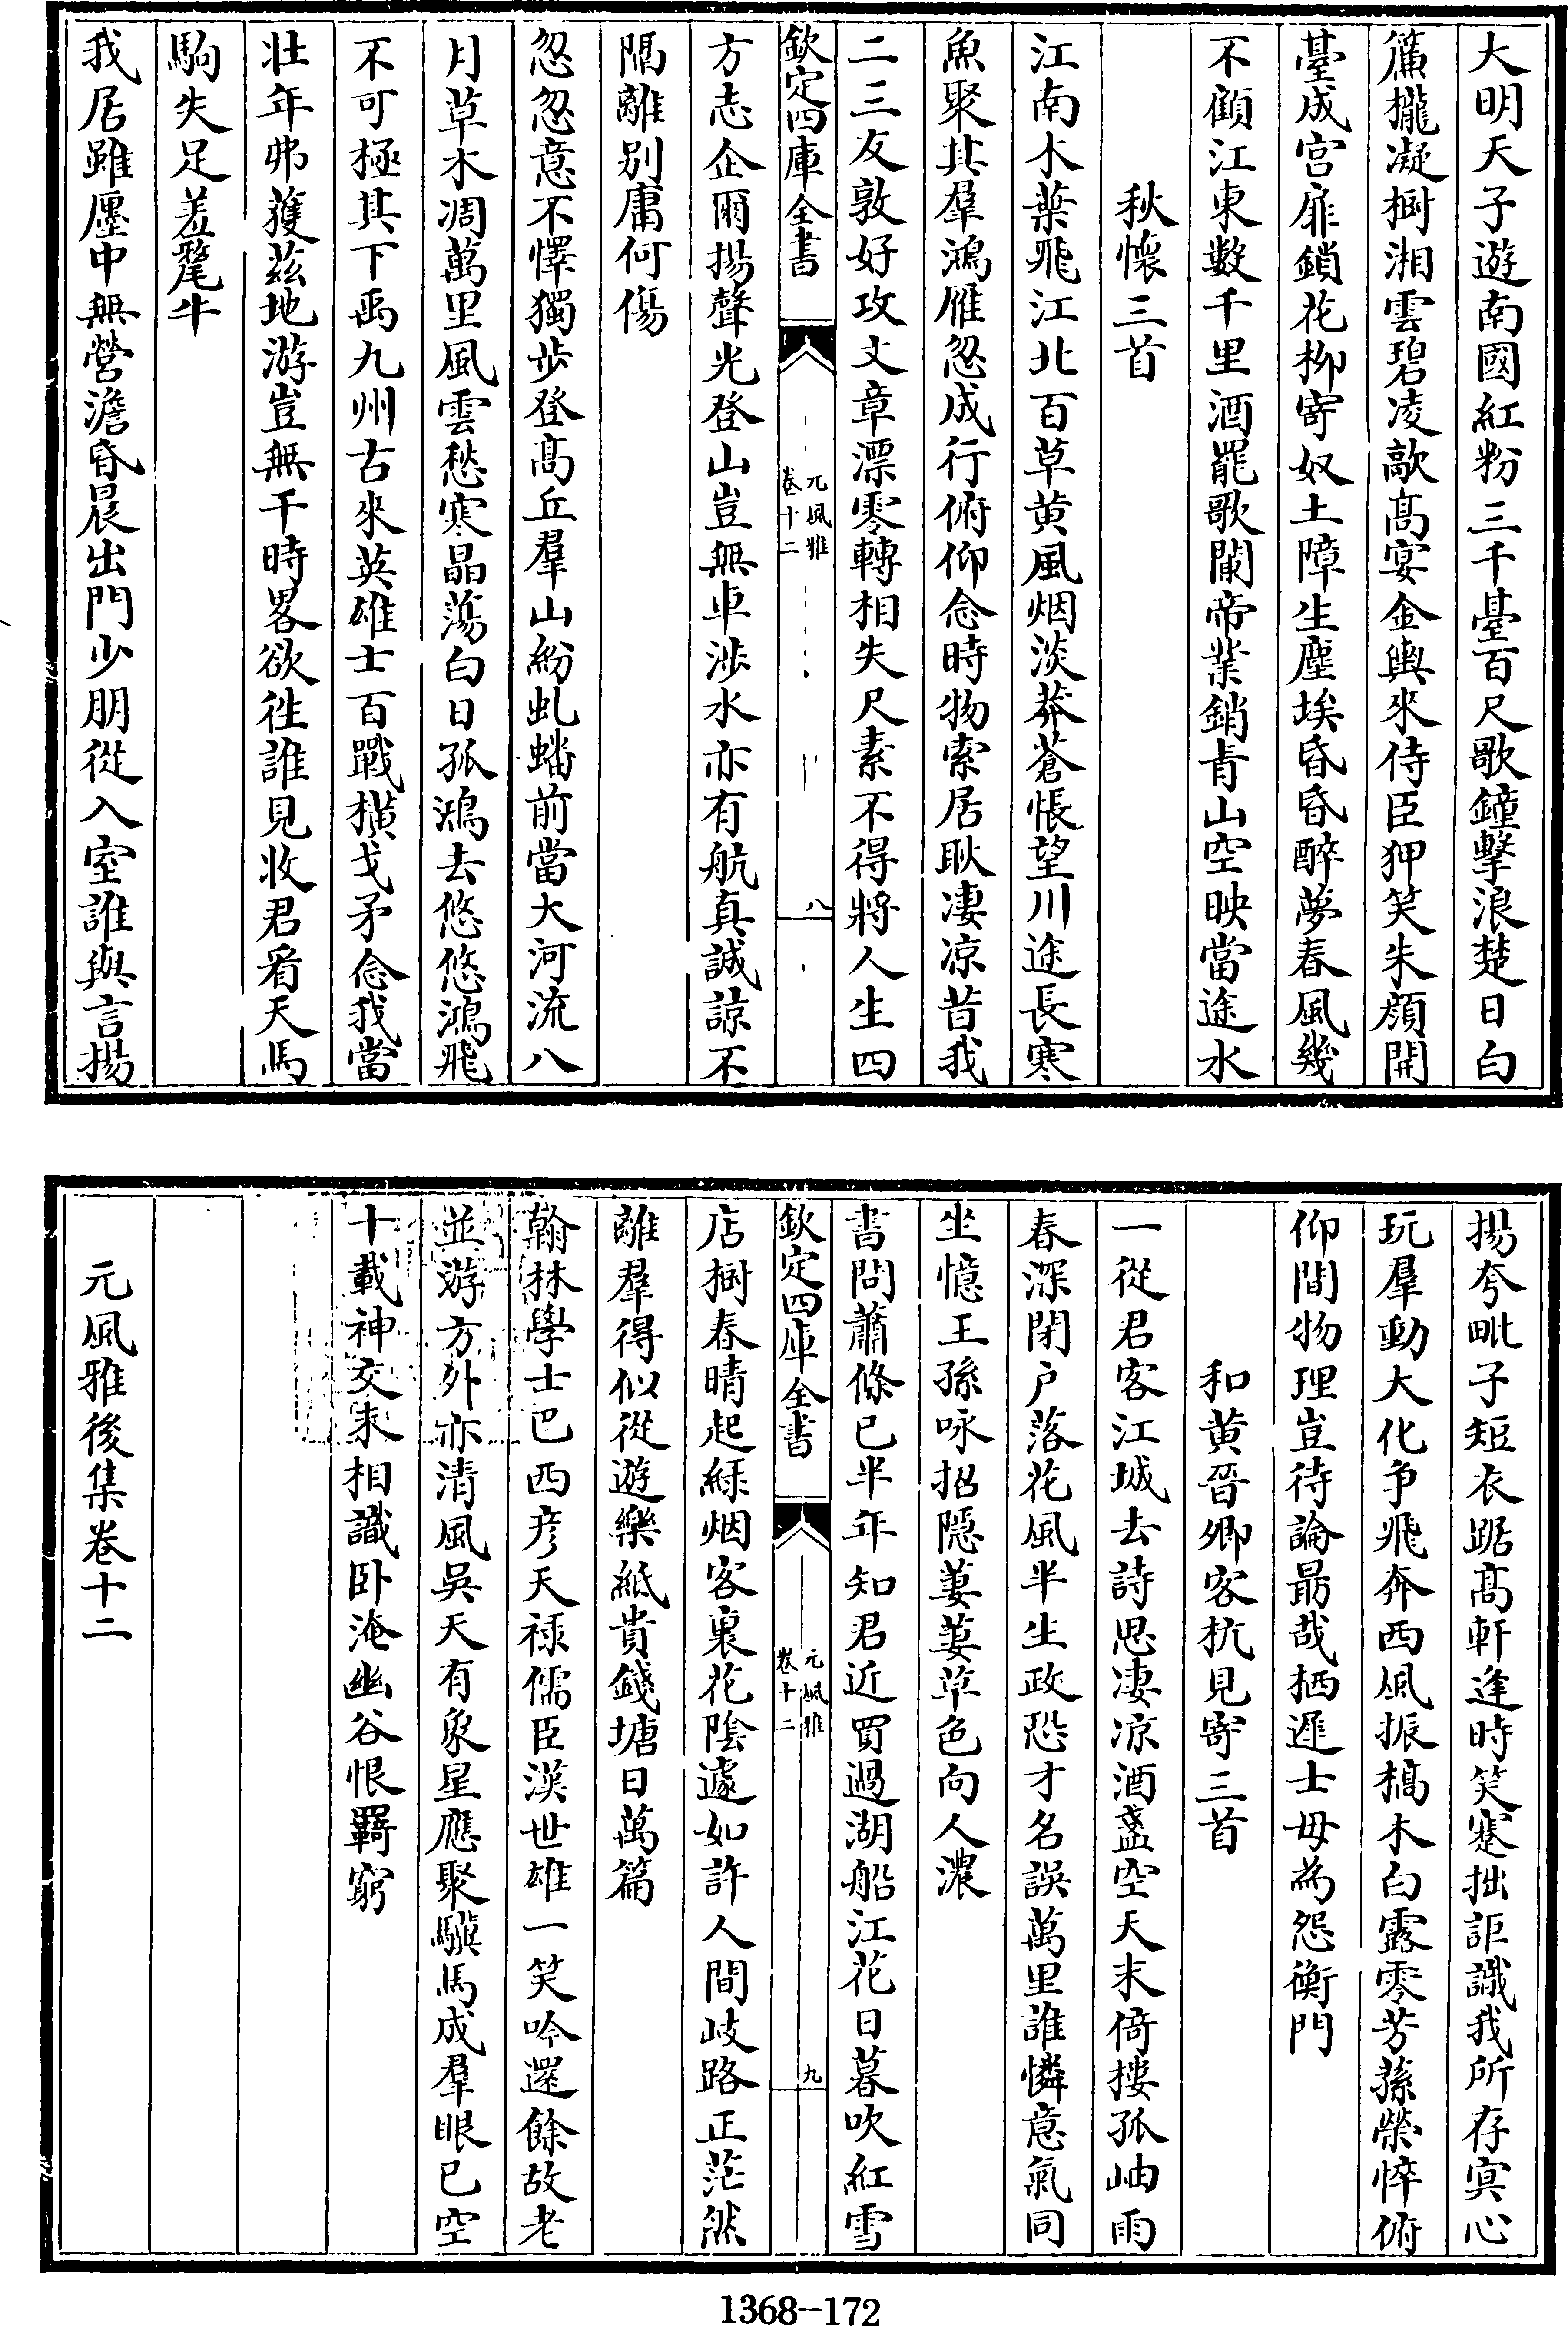 大明天子遊南國紅粉三千臺百尺歌鐘擊浪楚日白
簾櫳凝樹湘雲碧凌歊髙宴金輿來侍臣狎笑朱顔開
臺成宫扉鎖花柳寄奴土障生塵埃昏昏醉夢春風幾
不顧江東數千里酒罷歌闌帝業銷青山空映當途水
秋懷三首
江南木葉飛江北百草黄風烟淡莽蒼悵望川途長寒
魚聚其羣鴻雁忽成行俯仰念時物索居耿凄凉昔我
二三友敦好攻文章漂零轉相失尺素不得將人生四
欽定四庫全書
元風雅
卷十二
八
方志企爾揚聲光登山豈無車涉水亦有航真誠諒不
隔離别庸何傷
忽忽意不懌獨步登髙丘羣山紛虬蟠前當大河流八
月草木凋萬里風雲愁寒晶蕩白日孤鴻去悠悠鴻飛
不可極其下禹九州古來英雄士百戰横戈矛念我當
壮年弗獲兹地游豈無干時畧欲往誰見收君看天馬
駒失足羞氂牛
我居雖廛中無營澹昏晨出門少朋從入室誰與言揚
揚夸毗子短衣踞髙軒逢時笑蹇拙詎識我所存㝠心
玩羣動大化争飛奔西風振槁木白露零芳蓀榮悴俯
仰間物理豈待論勗哉栖遲士毋為怨衡門
和黄晉卿客杭見寄三首
一從君客江城去詩思凄凉酒盞空天末倚樓孤岫雨
春深閉户落花風半生政恐才名誤萬里誰憐意氣同
坐憶王孫咏招隱萋萋草色向人濃
書問蕭條已半年知君近買過湖船江花日暮吹紅雪
欽定四庫全書
元風雅
卷十二
九
店樹春晴起緑烟客裏花陰遽如許人間岐路正茫然
離羣得似從遊樂紙貴錢塘日萬篇
翰林學士巴西彦天禄儒臣漢世雄一笑吟還餘故老
並游方外亦清風吳天有象星應聚驥馬成羣眼已空
十載神交未相識卧淹幽谷恨羇窮
元風雅後集卷十二
1368-172